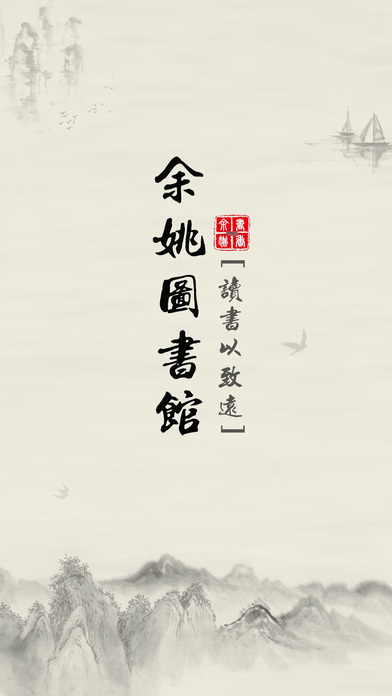 余姚圖書館
書香
余姚
[讀書以致遠]